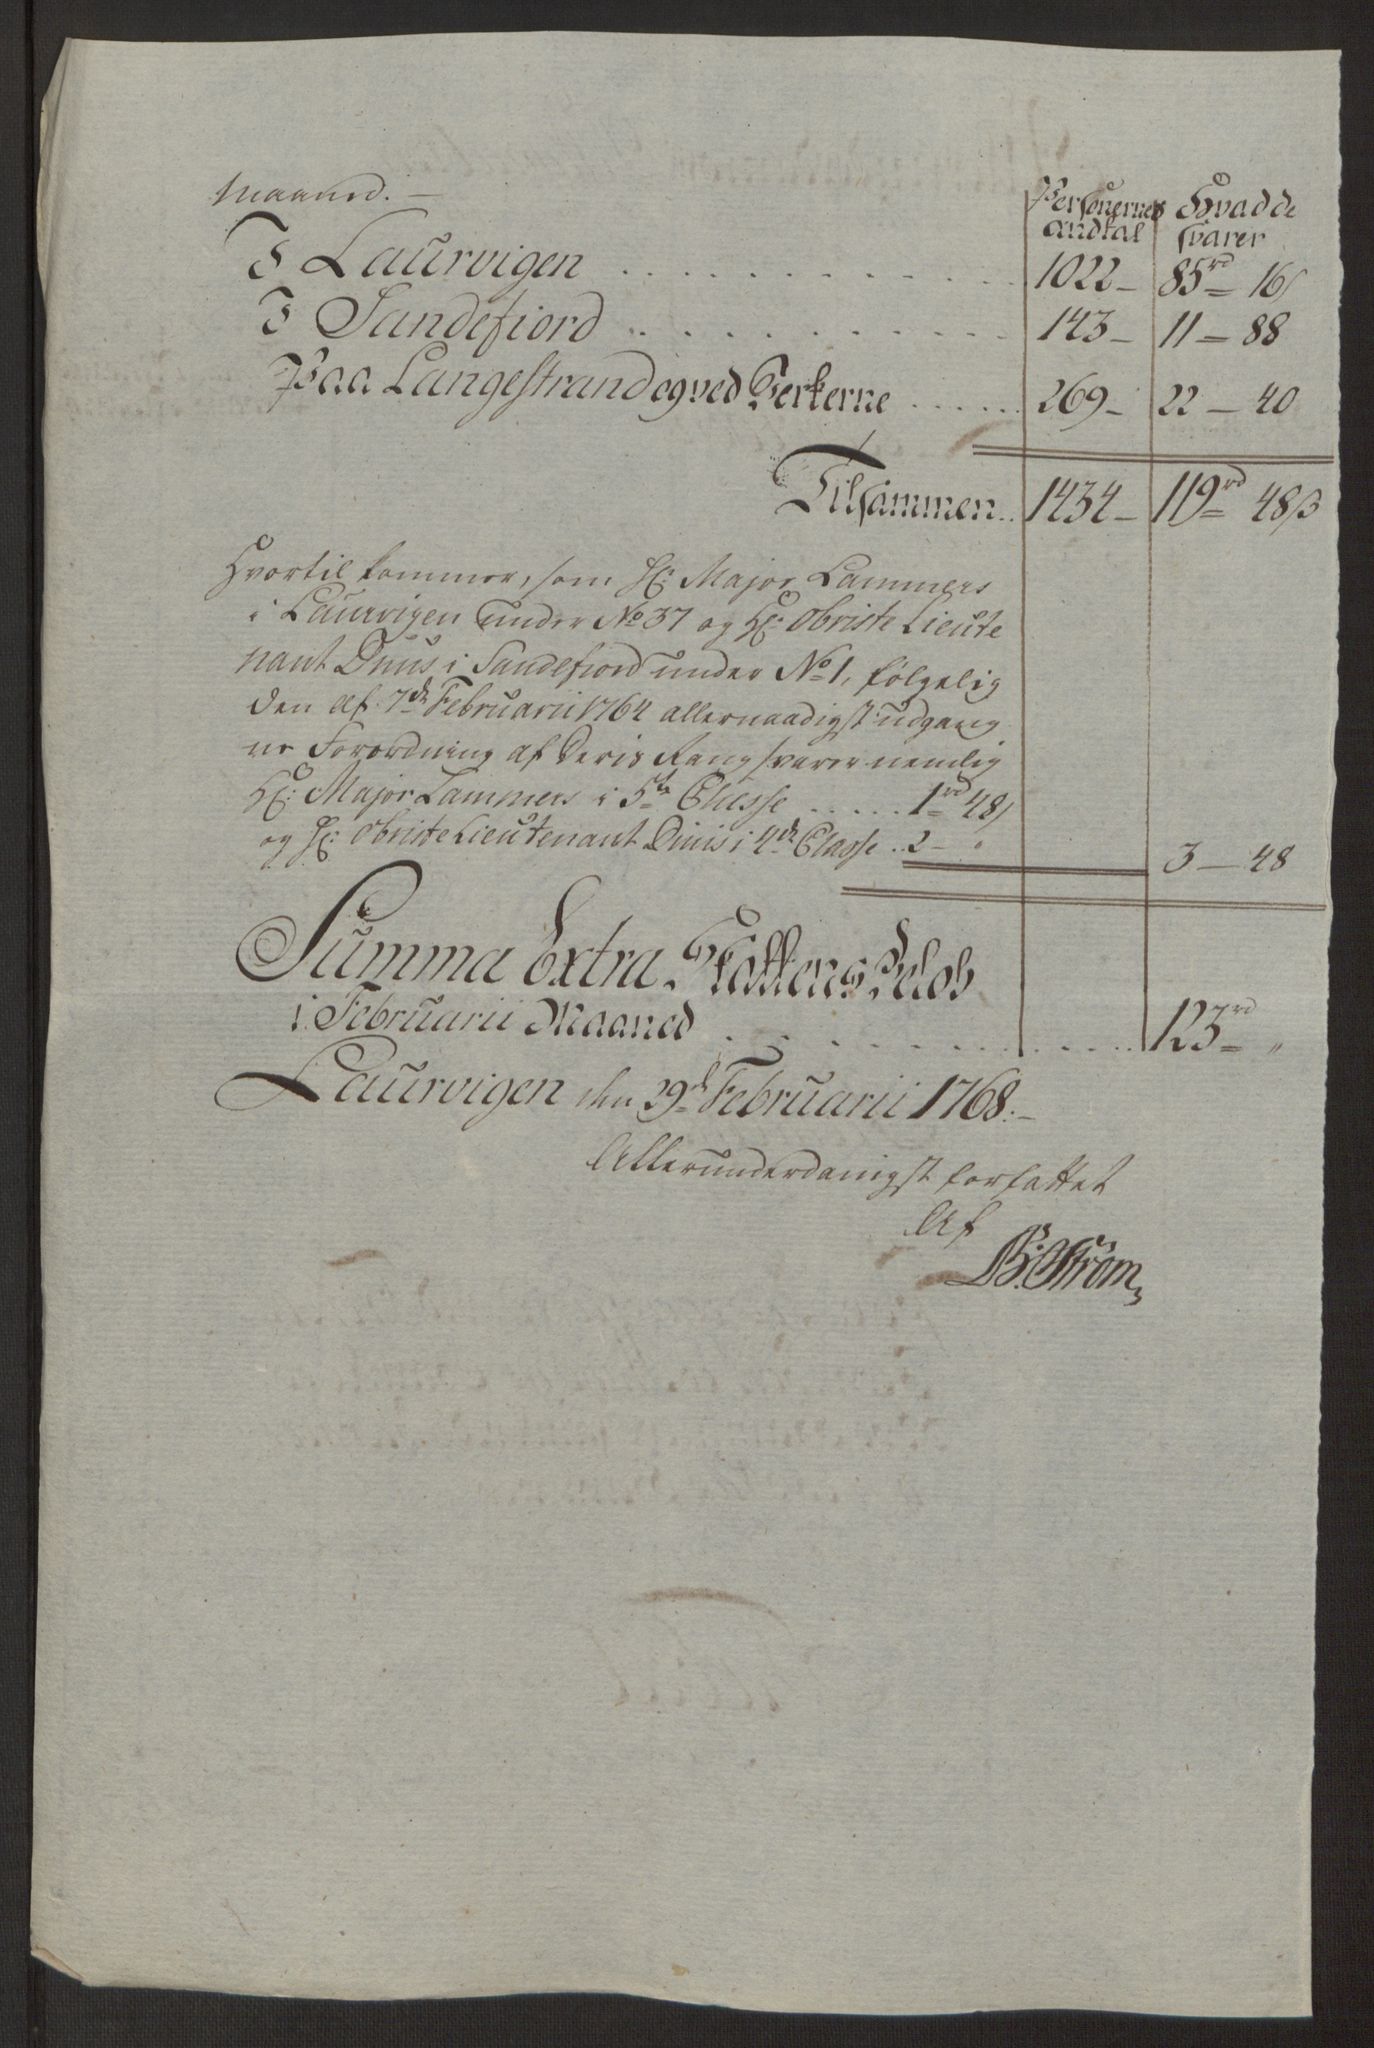 Maaned. —
Personernes Hvad de
andtal svarer
I Laurvigen . . . . . . . . . . . 1022 — 85 rd = 16 s
I Sandefiord . . . . . . . . . . . 143 — 11 — 88
Paa Langestrand og ved Verkerne . . . . . . 269 — 22 — 40
Tilsammen . . 1434 — 119 rd = 48 β
Hvortil kommer, som Hr: Major Lammers
i Laurvigen under No 37 og Hr: Obriste Lieute
nant Duus i Sandefiord under No 1, følgelig
den af 7de Februarii 1764 allernaadigst udgang
ne Forordning af Deris Rang svarer nemlig
Hr: Major Lammers i 5te Classe . . . . . 1 rd = 48 s
og Hr: Obriste Lieutenant Duus i 4de Classe . . 2 — "
3 — 48
Summa Extra Skattens Beløb
i Februarii Maaned . . . . . . . . . . . 123 rd = "
Laurvigen den 29de Februarii 1768. —
Allerunderdanigst forfattet
Af
B: Strøm